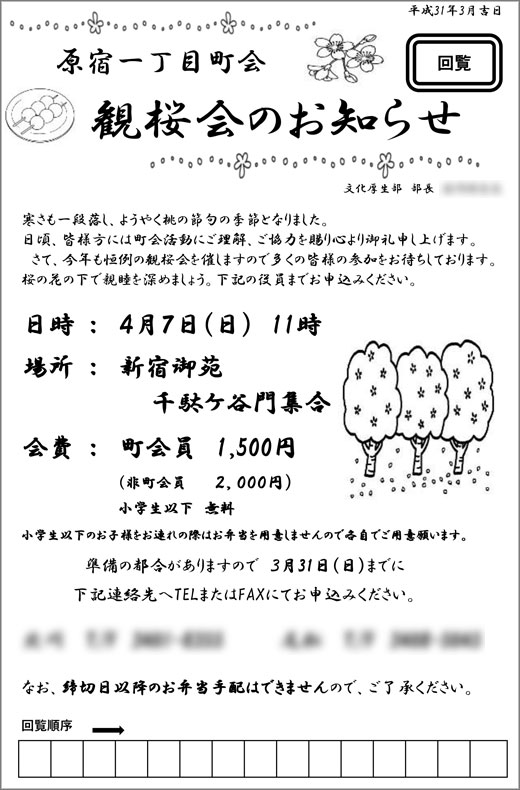 平成31年3月吉日
原宿一丁目町会
回覧
観桜会のお知らせ
文化厚生部 部長
寒さも一段落し、ようやく桃の節句の季節となりました。
日頃、皆様方には町会活動にご理解、ご協力を賜り心より御礼申し上げます。
さて、今年も恒例の観桜会を催しますので多くの皆様の参加をお待ちしております。
桜の花の下で親睦を深めましょう。下記の役員までお申込みください。
日時 : 4月7日(日) 11時
場所 : 新宿御苑
千駄ケ谷門集合
会費 : 町会員 1,500円
(非町会員 2,000円)
小学生以下 無料
小学生以下のお子様をお連れの際はお弁当を用意しませんので各自でご用意願います。
準備の都合がありますので 3月31日(日)までに
下記連絡先へTELまたはFAXにてお申込みください。
なお、締切日以降のお弁当手配はできませんので、ご了承ください。
回覧順序